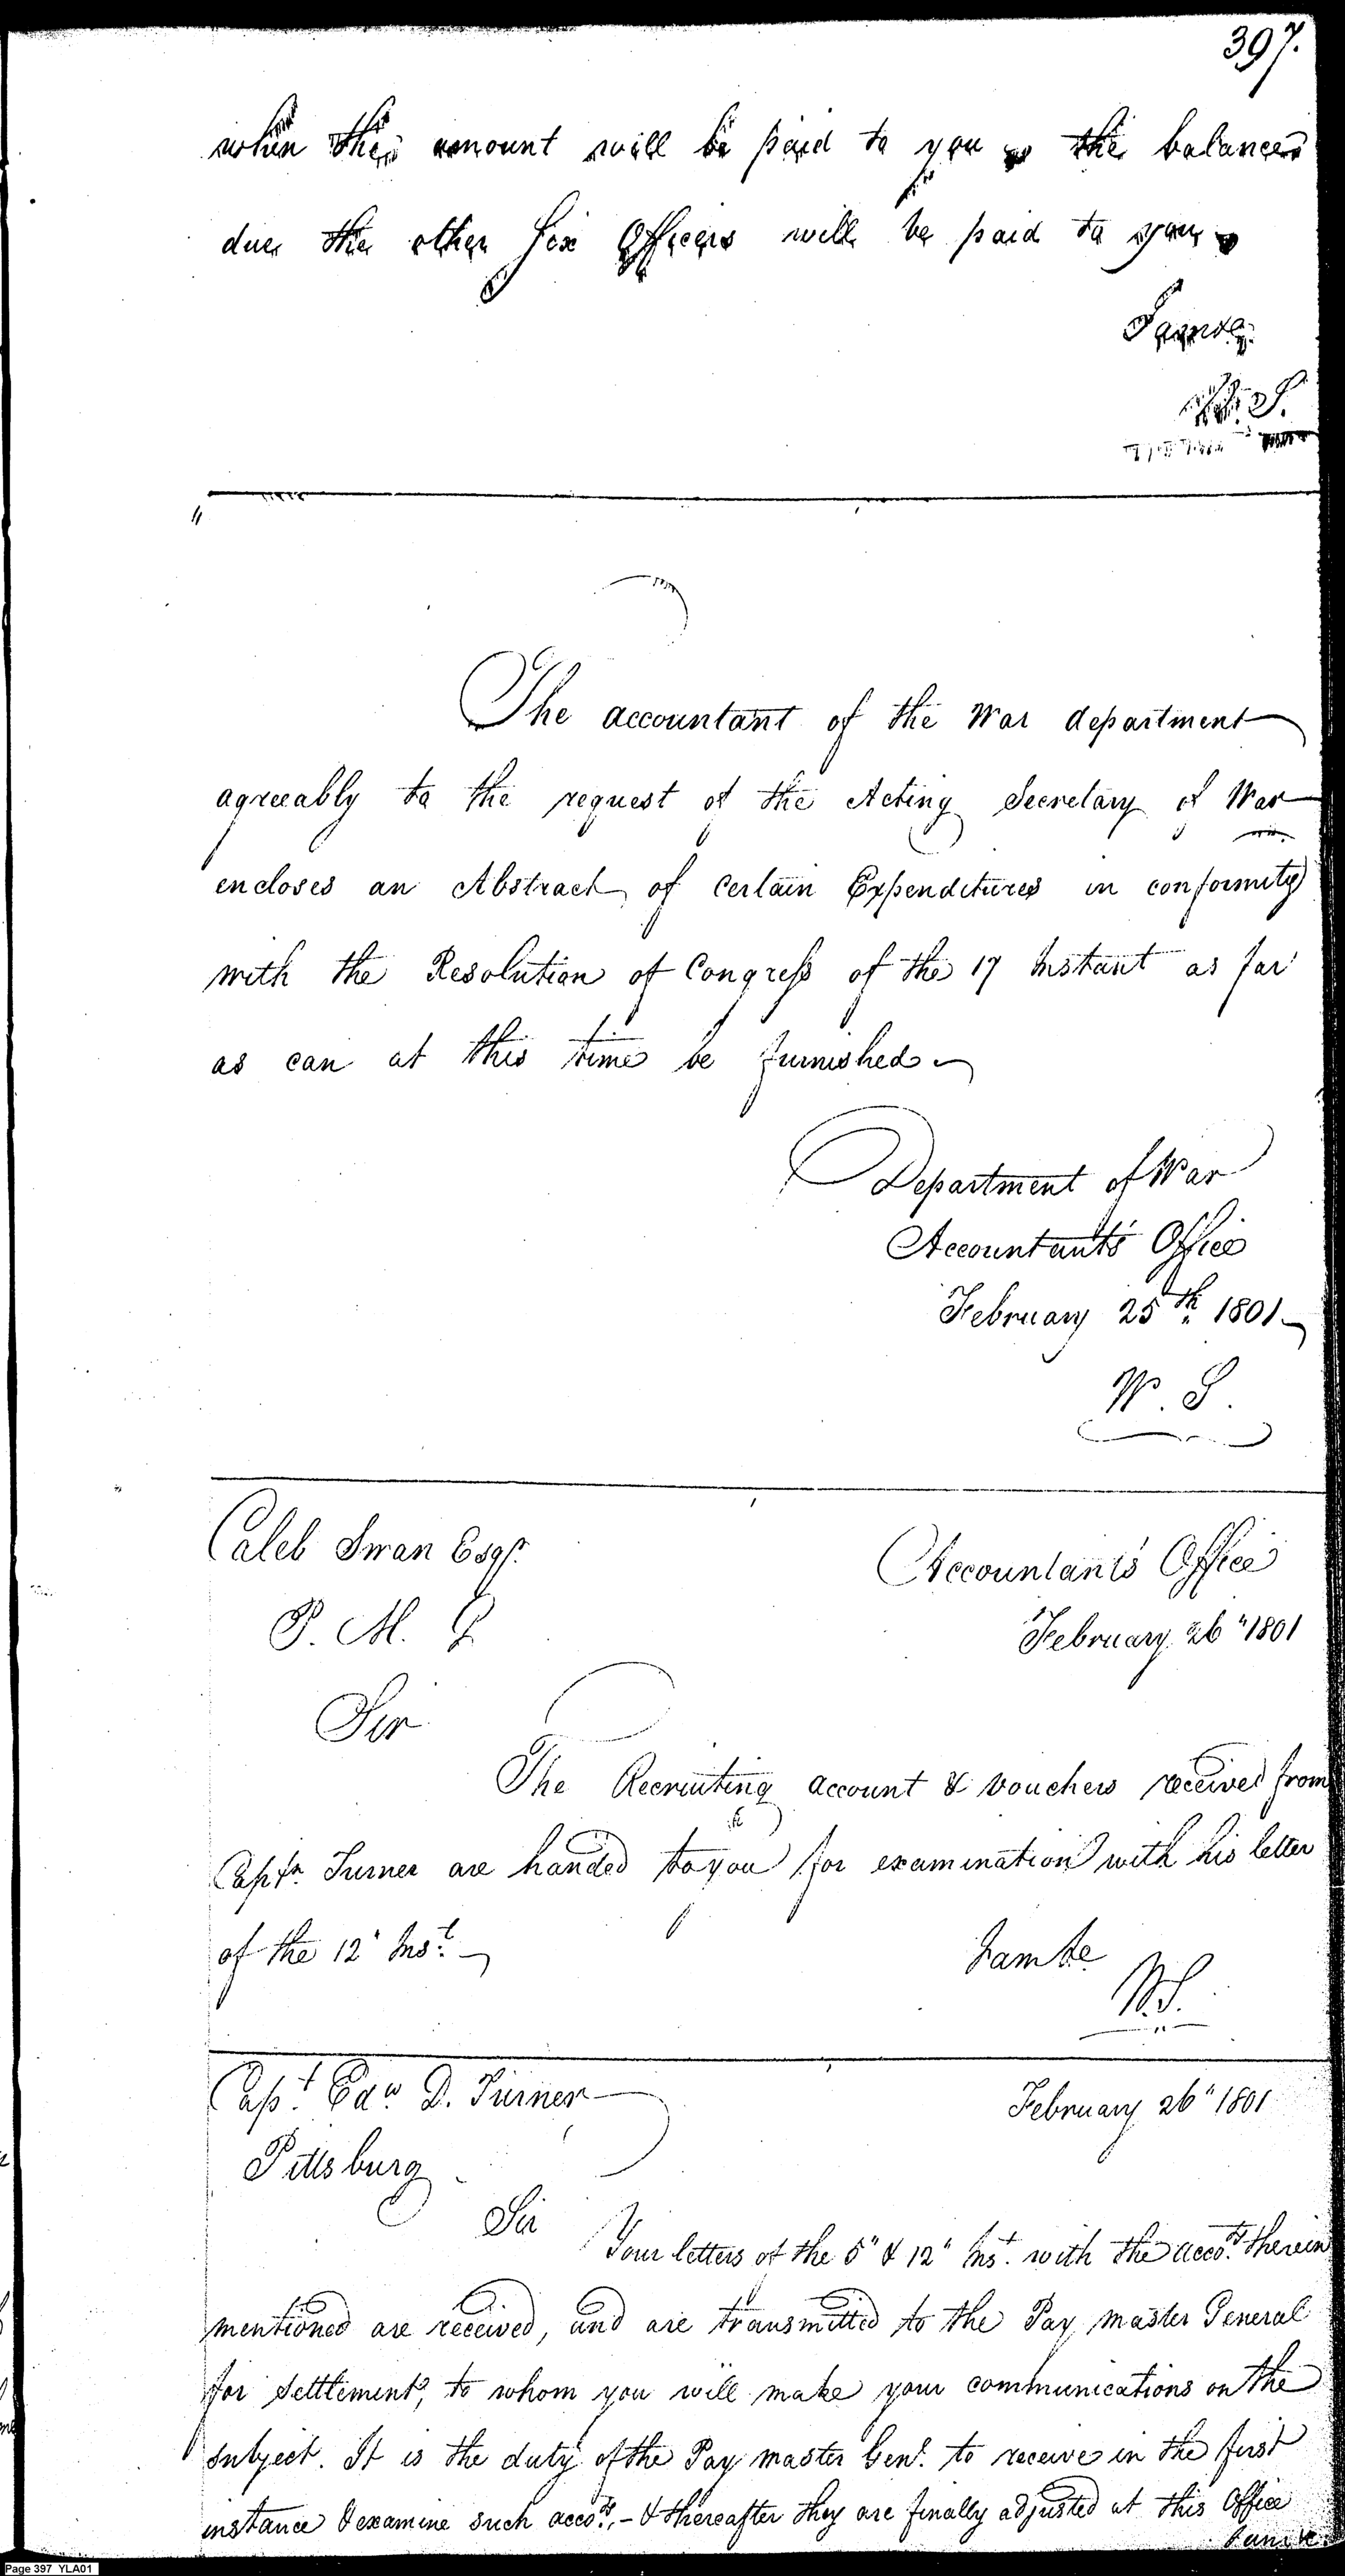 397.
when the amount will be paid to you the balances
due the other six Officers will be paid to you
I am &c
W. S.
The accountant of the War department
agreeably to the request of the Acting Secretary of War
encloses an Abstract of Certain Expenditures in conformity
with the Resolution of Congress of the 17 Instant as far
as can at this time be furnished
Department of War
Accountant's Office
February 25th 1801
W. S.
Caleb Swan Esqr.
P. M. G
Accountant's Office
February 26" 1801
Sir
The Recruiting account & vouchers received from
Captn. Turner are handed to you for examination with his letter
of the 12" Inst.
I am &c
W. S.
Capt. Edw. D. Turner
Pittsburg
February 26" 1801
Sir
Your letters of the 5" & 12" Inst. with the accots. therein
mentioned are received, and are transmitted to the Pay master General
for Settlement, to whom you will make your communications on the
subject. It is the duty of the Pay master Genl. to receive in the first
instance & examine such accots. - & thereafter they are finally adjusted at this Office
I am &c
Page 397 YLA01